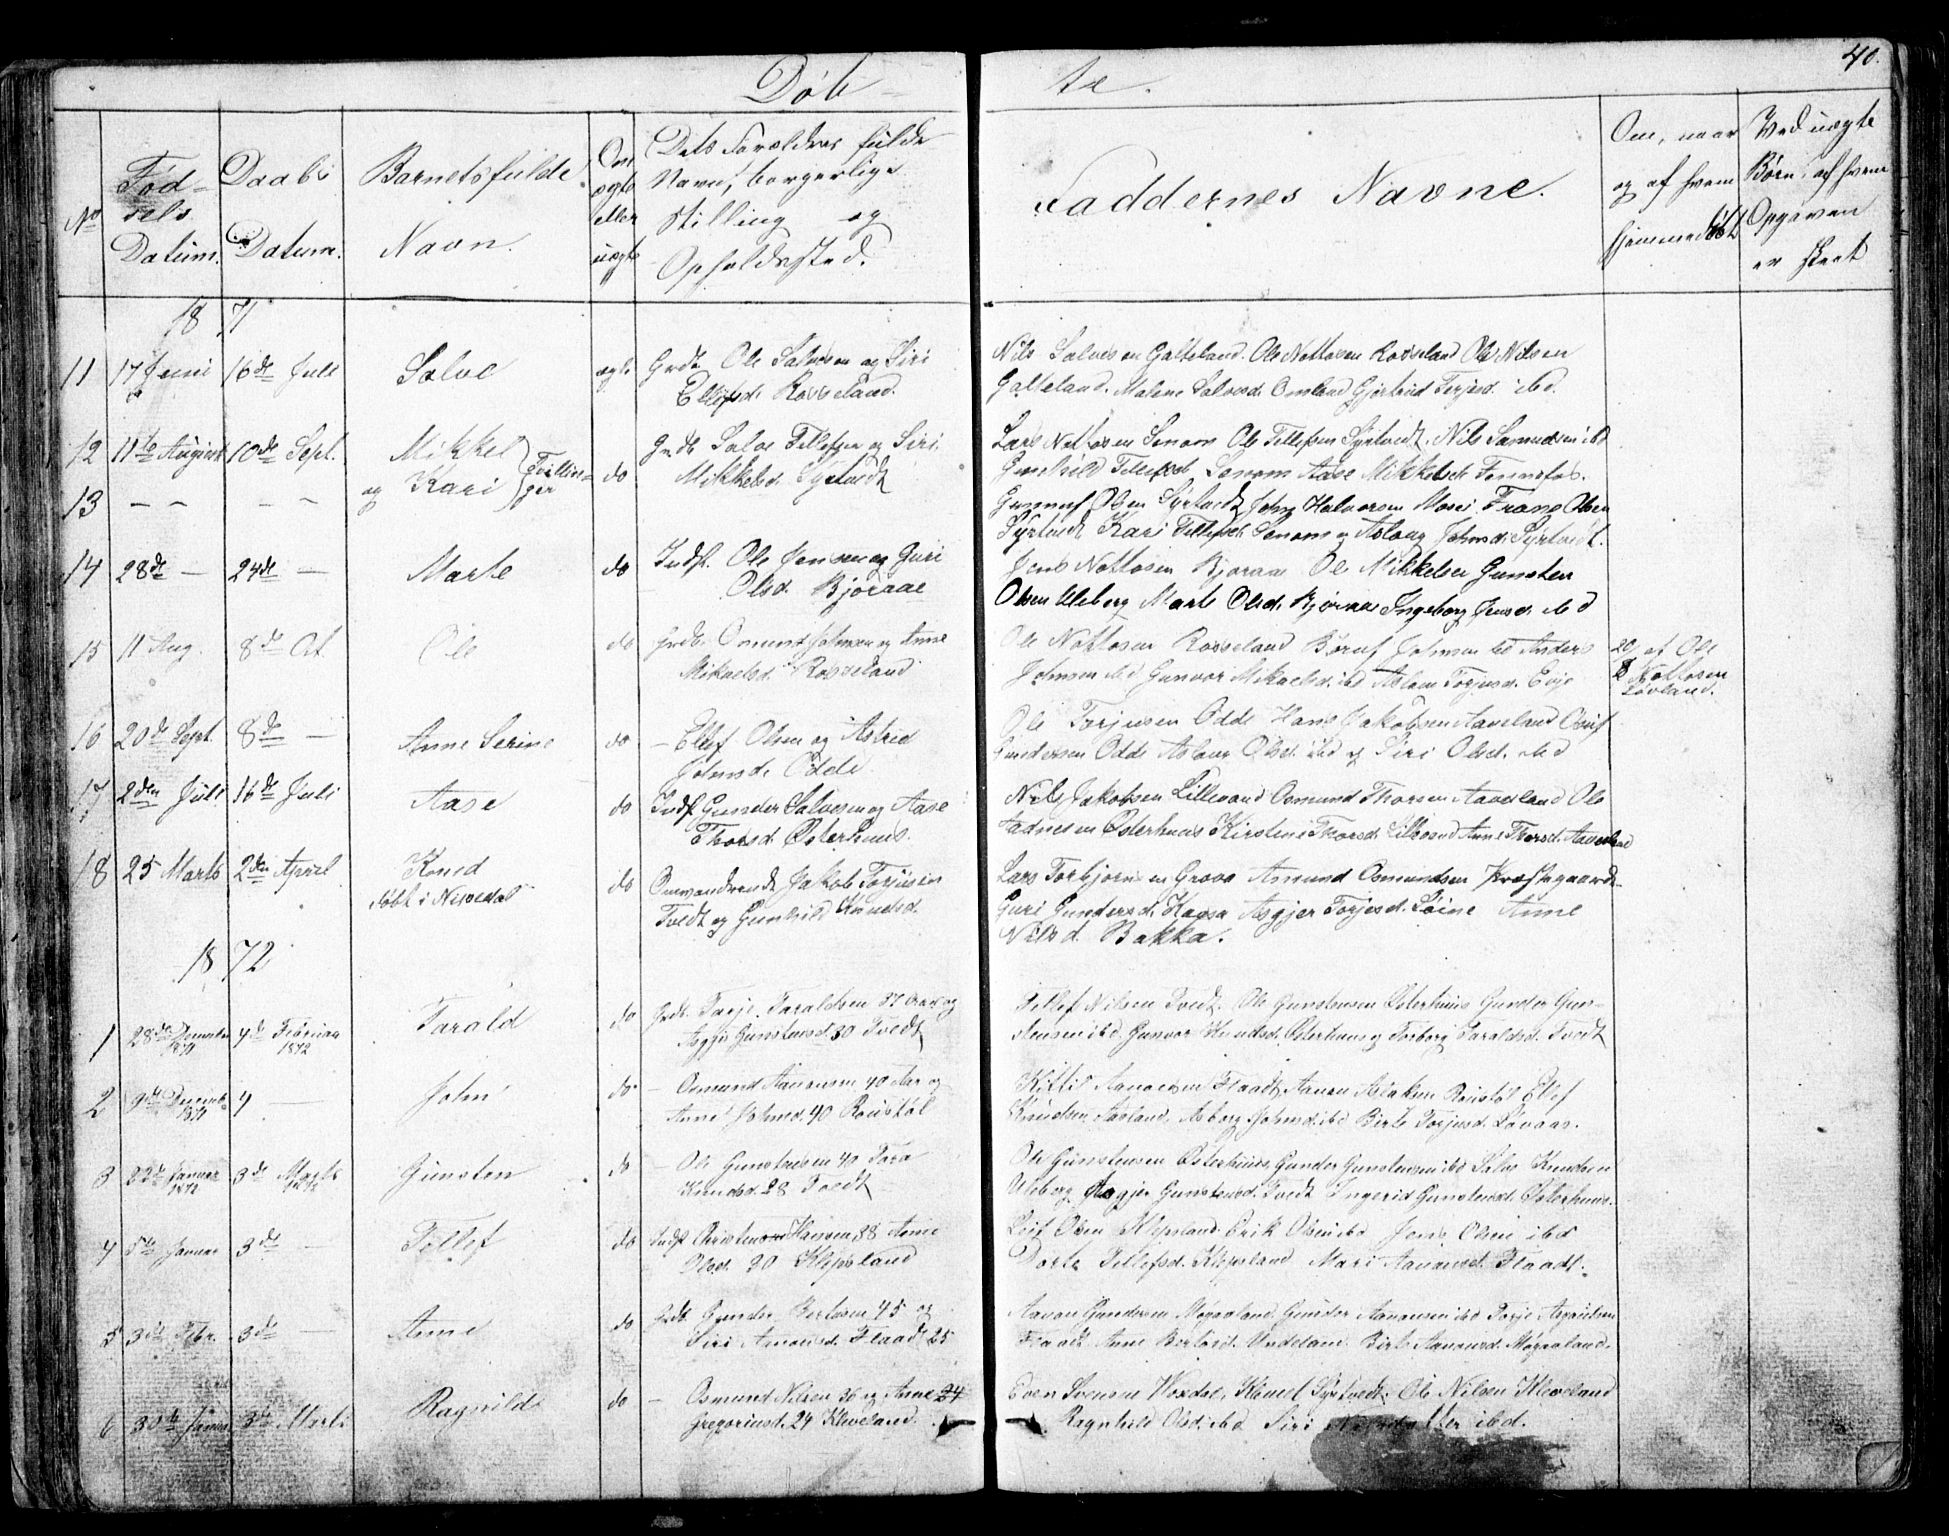 40.
Døb-
te.
No
Fød-
sels
Datum.
Daabs
Datum.
Barnets fulde
Navn.
Om
ægte
eller
uægte
Dets Forældres fulde
Navne, borgerlige
Stilling og
Opholdssted.
Faddernes Navne.
Om, naar
og af hvem
hjemmedøbt
Ved uægte
Børn, af hvem
Opgaven
er skeet
18 71
11 17 Juni 16de Juli Salve ægte Grdb. Ole Salvesen og Siri
Ellefsd. Rosseland.
Nils Salvesen Galteland. Ole Nottosen Rosseland Ole Nilsen
Galteland. Malene Salvesd. Omland Gjertrud Terjesd. ibd.
12 11te August 10de Sept. Mikkel
13 — — — — og Kari Tvillin-
ger do
Grdb. Salve Tellefsen og Siri
Mikkelsd. Syrtvedt
Lars Nottosen Senom Ole Tellefsen Syrtvedt, Nils Samuelsen ibd
Gunhild Tellefsd. Senom Aase Mikkelsd. Fennefos.
Gunnuf Olsen Syrtvedt John Halvorsen Moseid Frans Olsen
Syrtvedt Kari Tellefsd. Senom og Aslaug Johnsd. Syrtvedt.
14 28de — 24de — Marte do Indst. Ole Jensen og Guri
Olsd. Bjøraae
Jens Nottosen Bjoraae Ole Mikkelsen Gunsten
Olsen Uleberg Marte Olsd. Bjøraae Ingeborg Jensd. ibd
15 11 Aug. 8de Oct. Ole do Grdb. Osmund Johnsen og Anne
Mikaelsd. Rosseland
Ole Nottosen Rosseland Børuf Johnsen ibd Anders
Johnsen ibd Gunvor Mikaelsd. ibd Aslaug Torjusd. Evje
20/8 af Ole
Nottosen
Løvland.
16 20de Sept. 8de — Anne Serine do — Ellef Olsen og Astrid
Johnsd. Odde
Ole Torjusen Odde Hans Jakobsen Aaveland
Gundersen Odde Aslaug Olsd. ibd og Siri Olsd. ibd
17 2den Juli 16de Juli Aase do Indst. Gunder Salvesen og Aase
Thorsd. Østerhuus.
Nils Jakobsen Lillevand Osmund Thorsen Aaveland Ole
Tadnesen Østerhuus Kirstine Thorsd. Lillevand Anne Thorsd. Aaveland
18 25 Marts 2den April Knud
døbt i Nissedal do Omvandrende Jakob Torjusen
Tvedt og Gunhild Knudsd.
Lars Torbjørnsen Grova Amund Osmundsen Præstegaard
Guri Gundersd. Kaasa Asgjer Torjesd. Loine Anne
Nilsd. Bakka.
18 72
1 28de December 1871 4de Februar 1872 Tarald do Grdb. Terje Taraldsen 37 Aar og
Asgjer Gunstensd. 30 Tvedt
Tellef Nilsen Tvedt. Ole Gunstensen Østerhuus Gunder Gun-
stensen ibd. Gunvor Knudsd. Østerhuus og Torborg Taraldsd. Tvedt
2 9de December 1871 4 — John do — Osmund Aanonsen 40 Aar og
Anne Johnsd. 40 Røustøl
Kittil Aanonsen Flaadt, Aanon Aslaksen Roustøl Ellef
Knudsen Aasland, Asborg Johnsd. ibd Birte Torjusd. Lovaas.
3 22de Januar 1872 3de Marts 1872 Gunsten do — Ole Gunstensen 40 Tora
Knudsd. 28 Tvedt
Ole Gunstensen Østerhuus, Gunder Gunstensen ibd Salve Knudsen
Uleberg Asgjer Gunstensd. Tvedt Ingerid Gunstensd. Østerhuus.
4 5te Januar 3de — Tellef do Indst. Christen Hansen 38 Anne
Olsd. 20 Klepsland
Leif Olsen Klepsland. Erik Olsen ibd Jens Olsen ibd
Dorte Tellefsd. Klepsland Mari Aanonsd. Flaadt.
5 3de Febr. 3de — Anne do Grdb. Gunder Bertosen 45 og
Siri Aanonsd. Flaadt 25
Aanon Gundersen Mogaaland Gunder Aanonsen ibd Terje Asgrimsen
Flaadt Anne Bertosd. Undeland Birte Aanonsd. Mogaaland.
6 30te Januar 3de Marts Ragnilde do — Osmund Nilsen 36 og Anne 24
Gregoriusd. 24 Kleveland.
Even Svensen Vexdal, Knud Syrtvedt, Ole Nilsen Kleveland
Ragnhild Olsd. ibd Siri ibd.